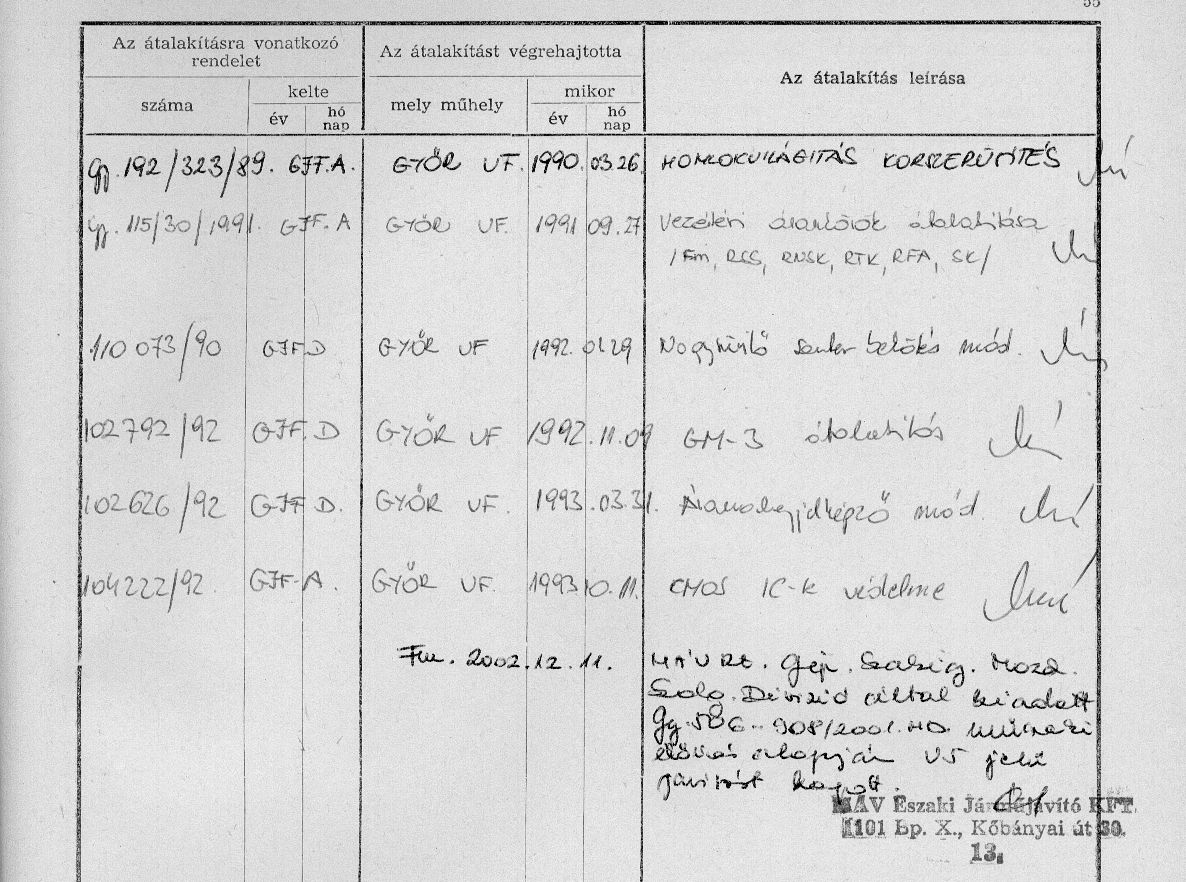 55
Az átalakításra vonatkozó rendelet
Az átalakítást végrehajtotta
Az átalakítás leírása
száma
kelte
mely műhely
mikor
év
hó nap
év
hó nap
Gy. 192/323/89. GJF.A. GYŐR UF. 1990. 03.26. HOMLOKVILÁGITÁS KORSZERŰSITÉS
Gy. 115/30/1991. GJF.A GYŐR UF. 1991 09.27 Vezetéri átalakitása
/Fm, RCS, RNSK, RTK, RFA, SK/
110 073/90 GJF.D GYŐR UF 1992. 01.29 mód.
102792/92 GJF.D GYŐR UF 1992.11.09 GM-3 átalakitás
102626/92 GJF D. GYŐR UF. 1993.03.31. mód.
104222/92 GJF-A. GYŐR UF. 1993 10.11. CMOS IC-k védelme
Fm. 2002.12.11. MÁV Rt. Gép. Mozd.
Divizió által kiadott
Gy. 586-908/2001.MD műszaki
előirás alapján V5 jelű
javitást kapott.
MÁV Északi Járműjavító KFT.
1101 Bp. X., Kőbányai út 30.
13.